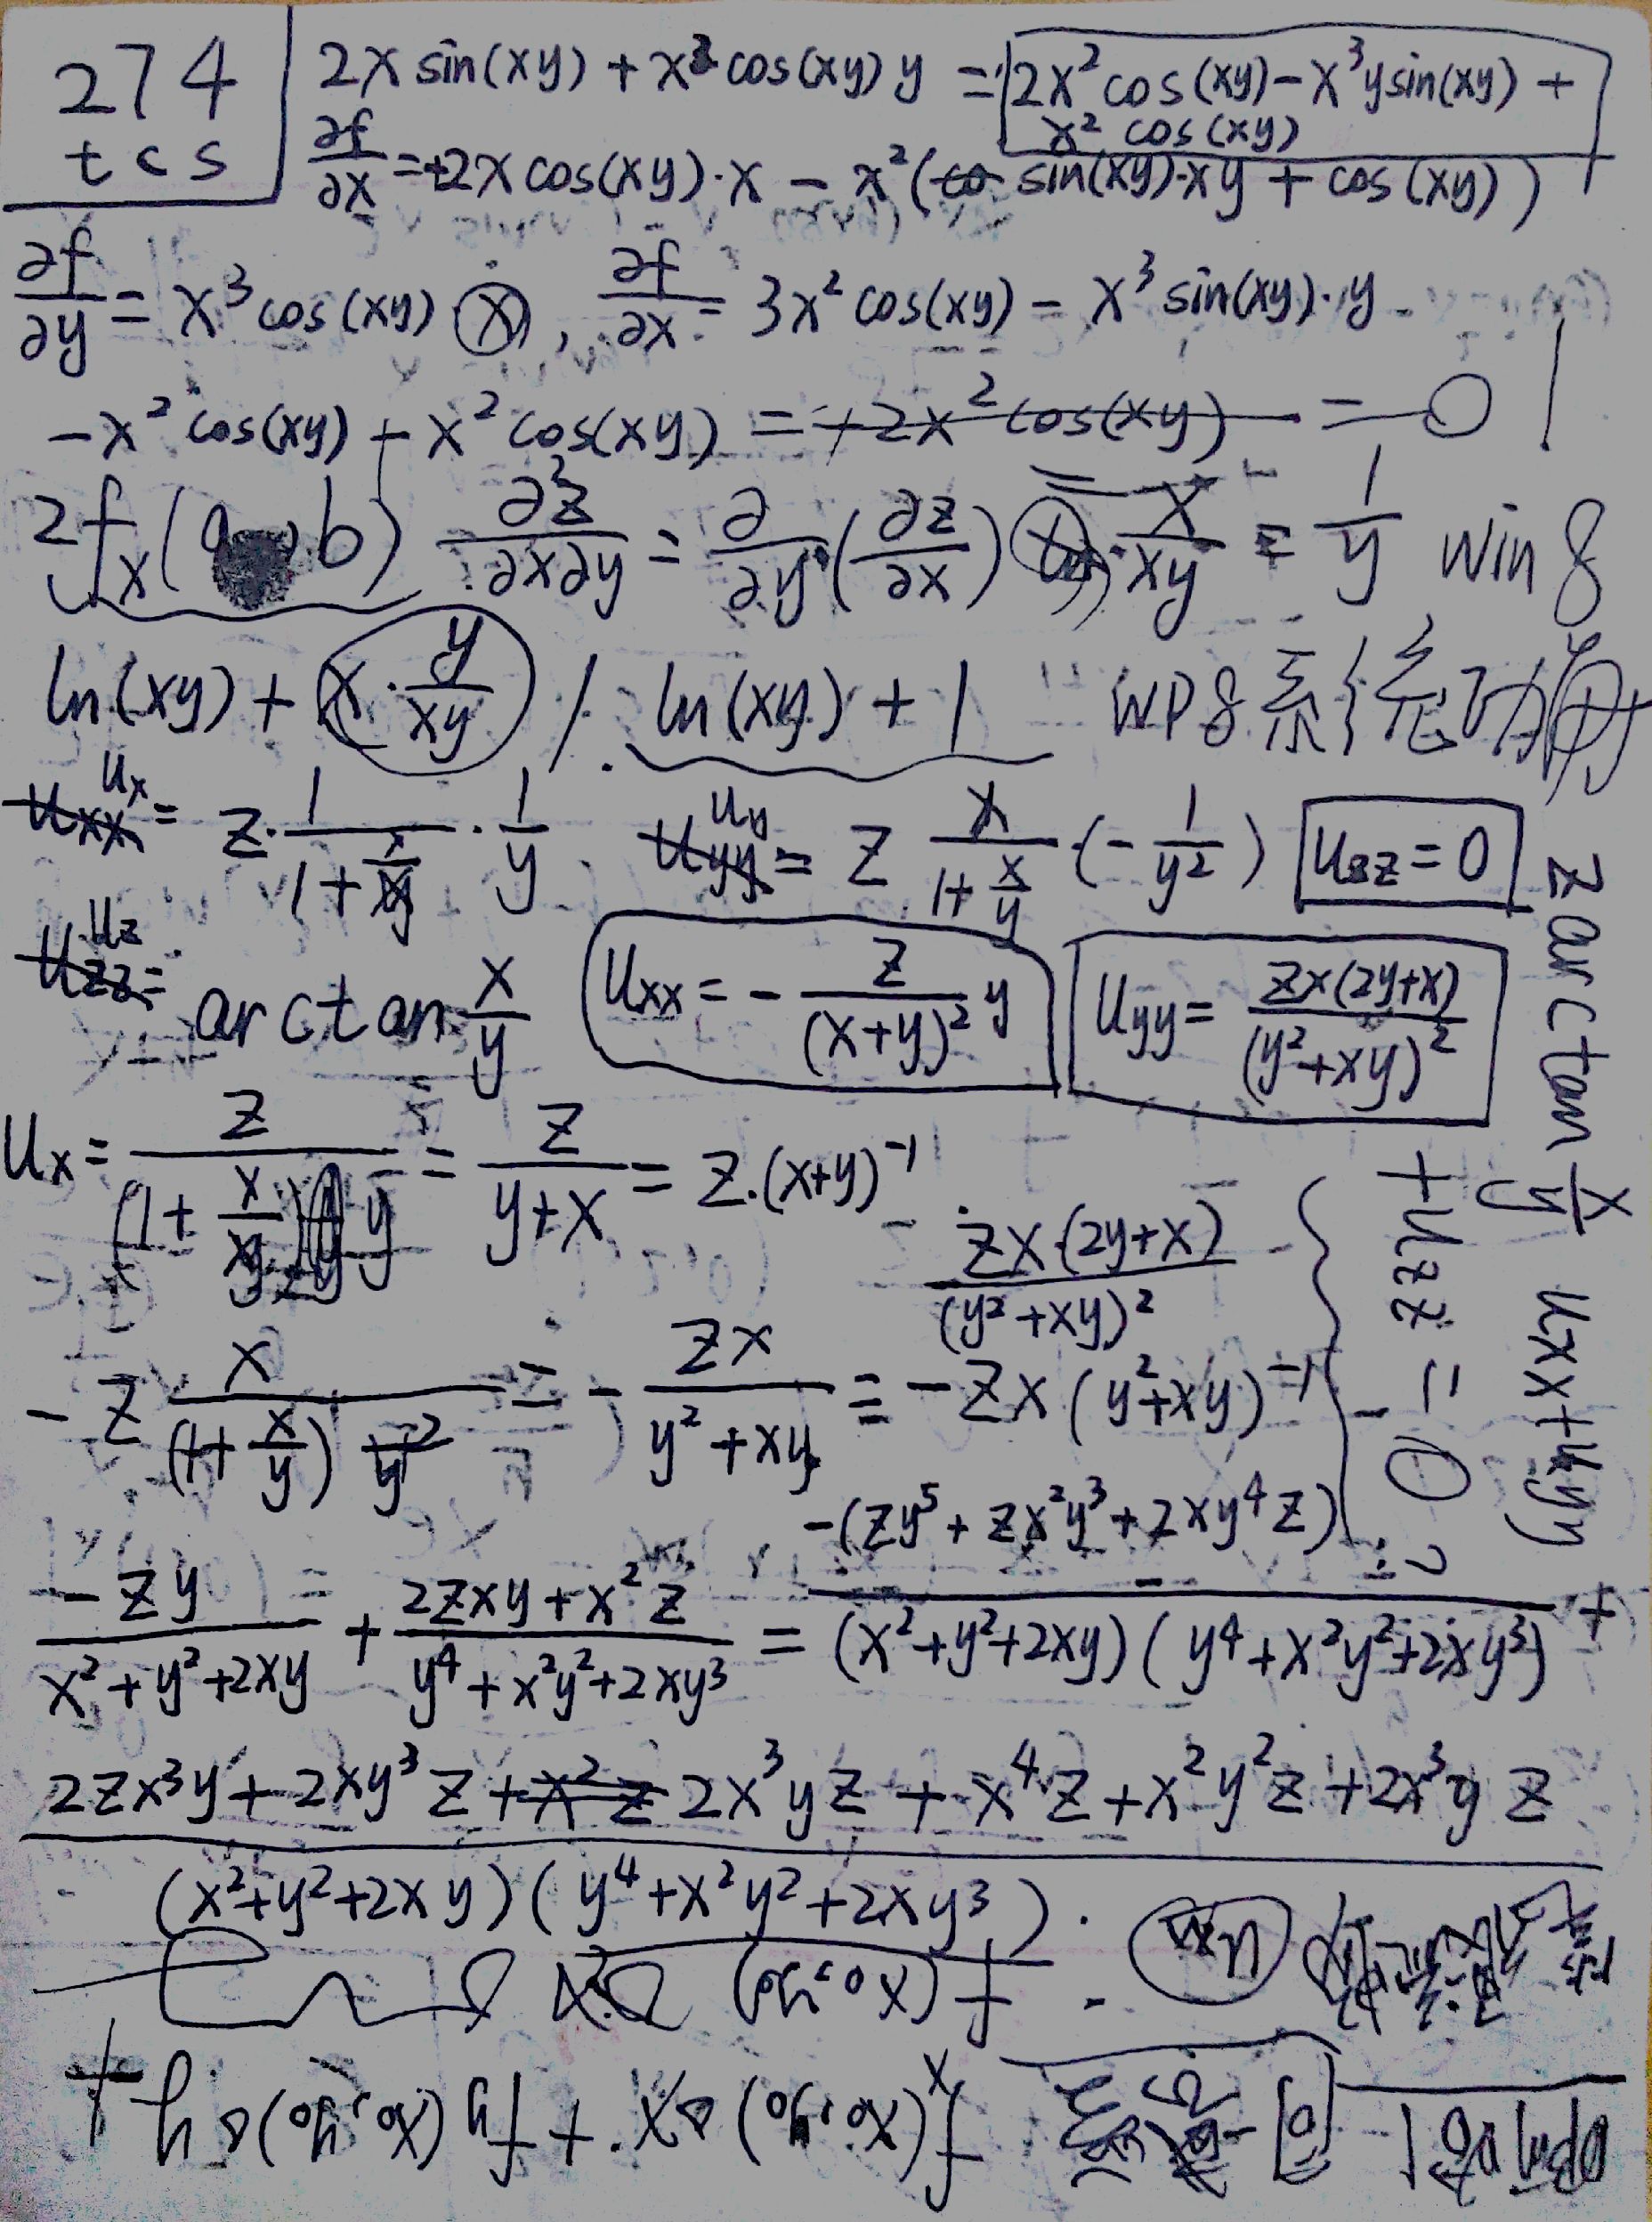 274
tcs
2x sin(xy) + x² cos(xy) y = 2x² cos(xy) - x³y sin(xy) +
x² cos(xy)
∂f/∂x = 2x cos(xy)·x - x²( sin(xy)·xy + cos(xy))
∂f/∂y = x³ cos(xy) (x), ∂f/∂x = 3x² cos(xy) - x³ sin(xy)·y
-x² cos(xy) + x² cos(xy) = +2x² cos(xy) = 0
2fx(a, b) ∂²z/∂x∂y = ∂/∂y (∂z/∂x) x/xy = 1/y win 8
ln(xy) + x·y/xy / ln(xy) + 1 WP8系统
ux = z·1/(1+x/y)·1/y uy = z x/(1+x/y)·(-1/y²) uzz = 0
uz = arctan x/y uxx = - z/(x+y)² y uyy = zx(2y+x)/(y²+xy)²
z arctan x/y uxx + uyy
+ uzz = 0
ux = z/((1+x/y)y) = z/(y+x) = z·(x+y)⁻¹
zx(2y+x)/(y²+xy)²
-z x/((1+x/y) y²) = - zx/(y²+xy) = -zx (y²+xy)⁻¹
-zy/(x²+y²+2xy) + (2zxy+x²z)/(y⁴+x²y²+2xy³) = -(zy⁵+zx²y³+2xy⁴z)/((x²+y²+2xy)(y⁴+x²y²+2xy³)) +
2zx³y + 2xy³z + x²z 2x³yz + x⁴z + x²y²z + 2x³yz
(x²+y²+2xy)(y⁴+x²y²+2xy³)
- f(x₀,y₀)
fx(x₀,y₀)Δx + fy(x₀,y₀)Δy +